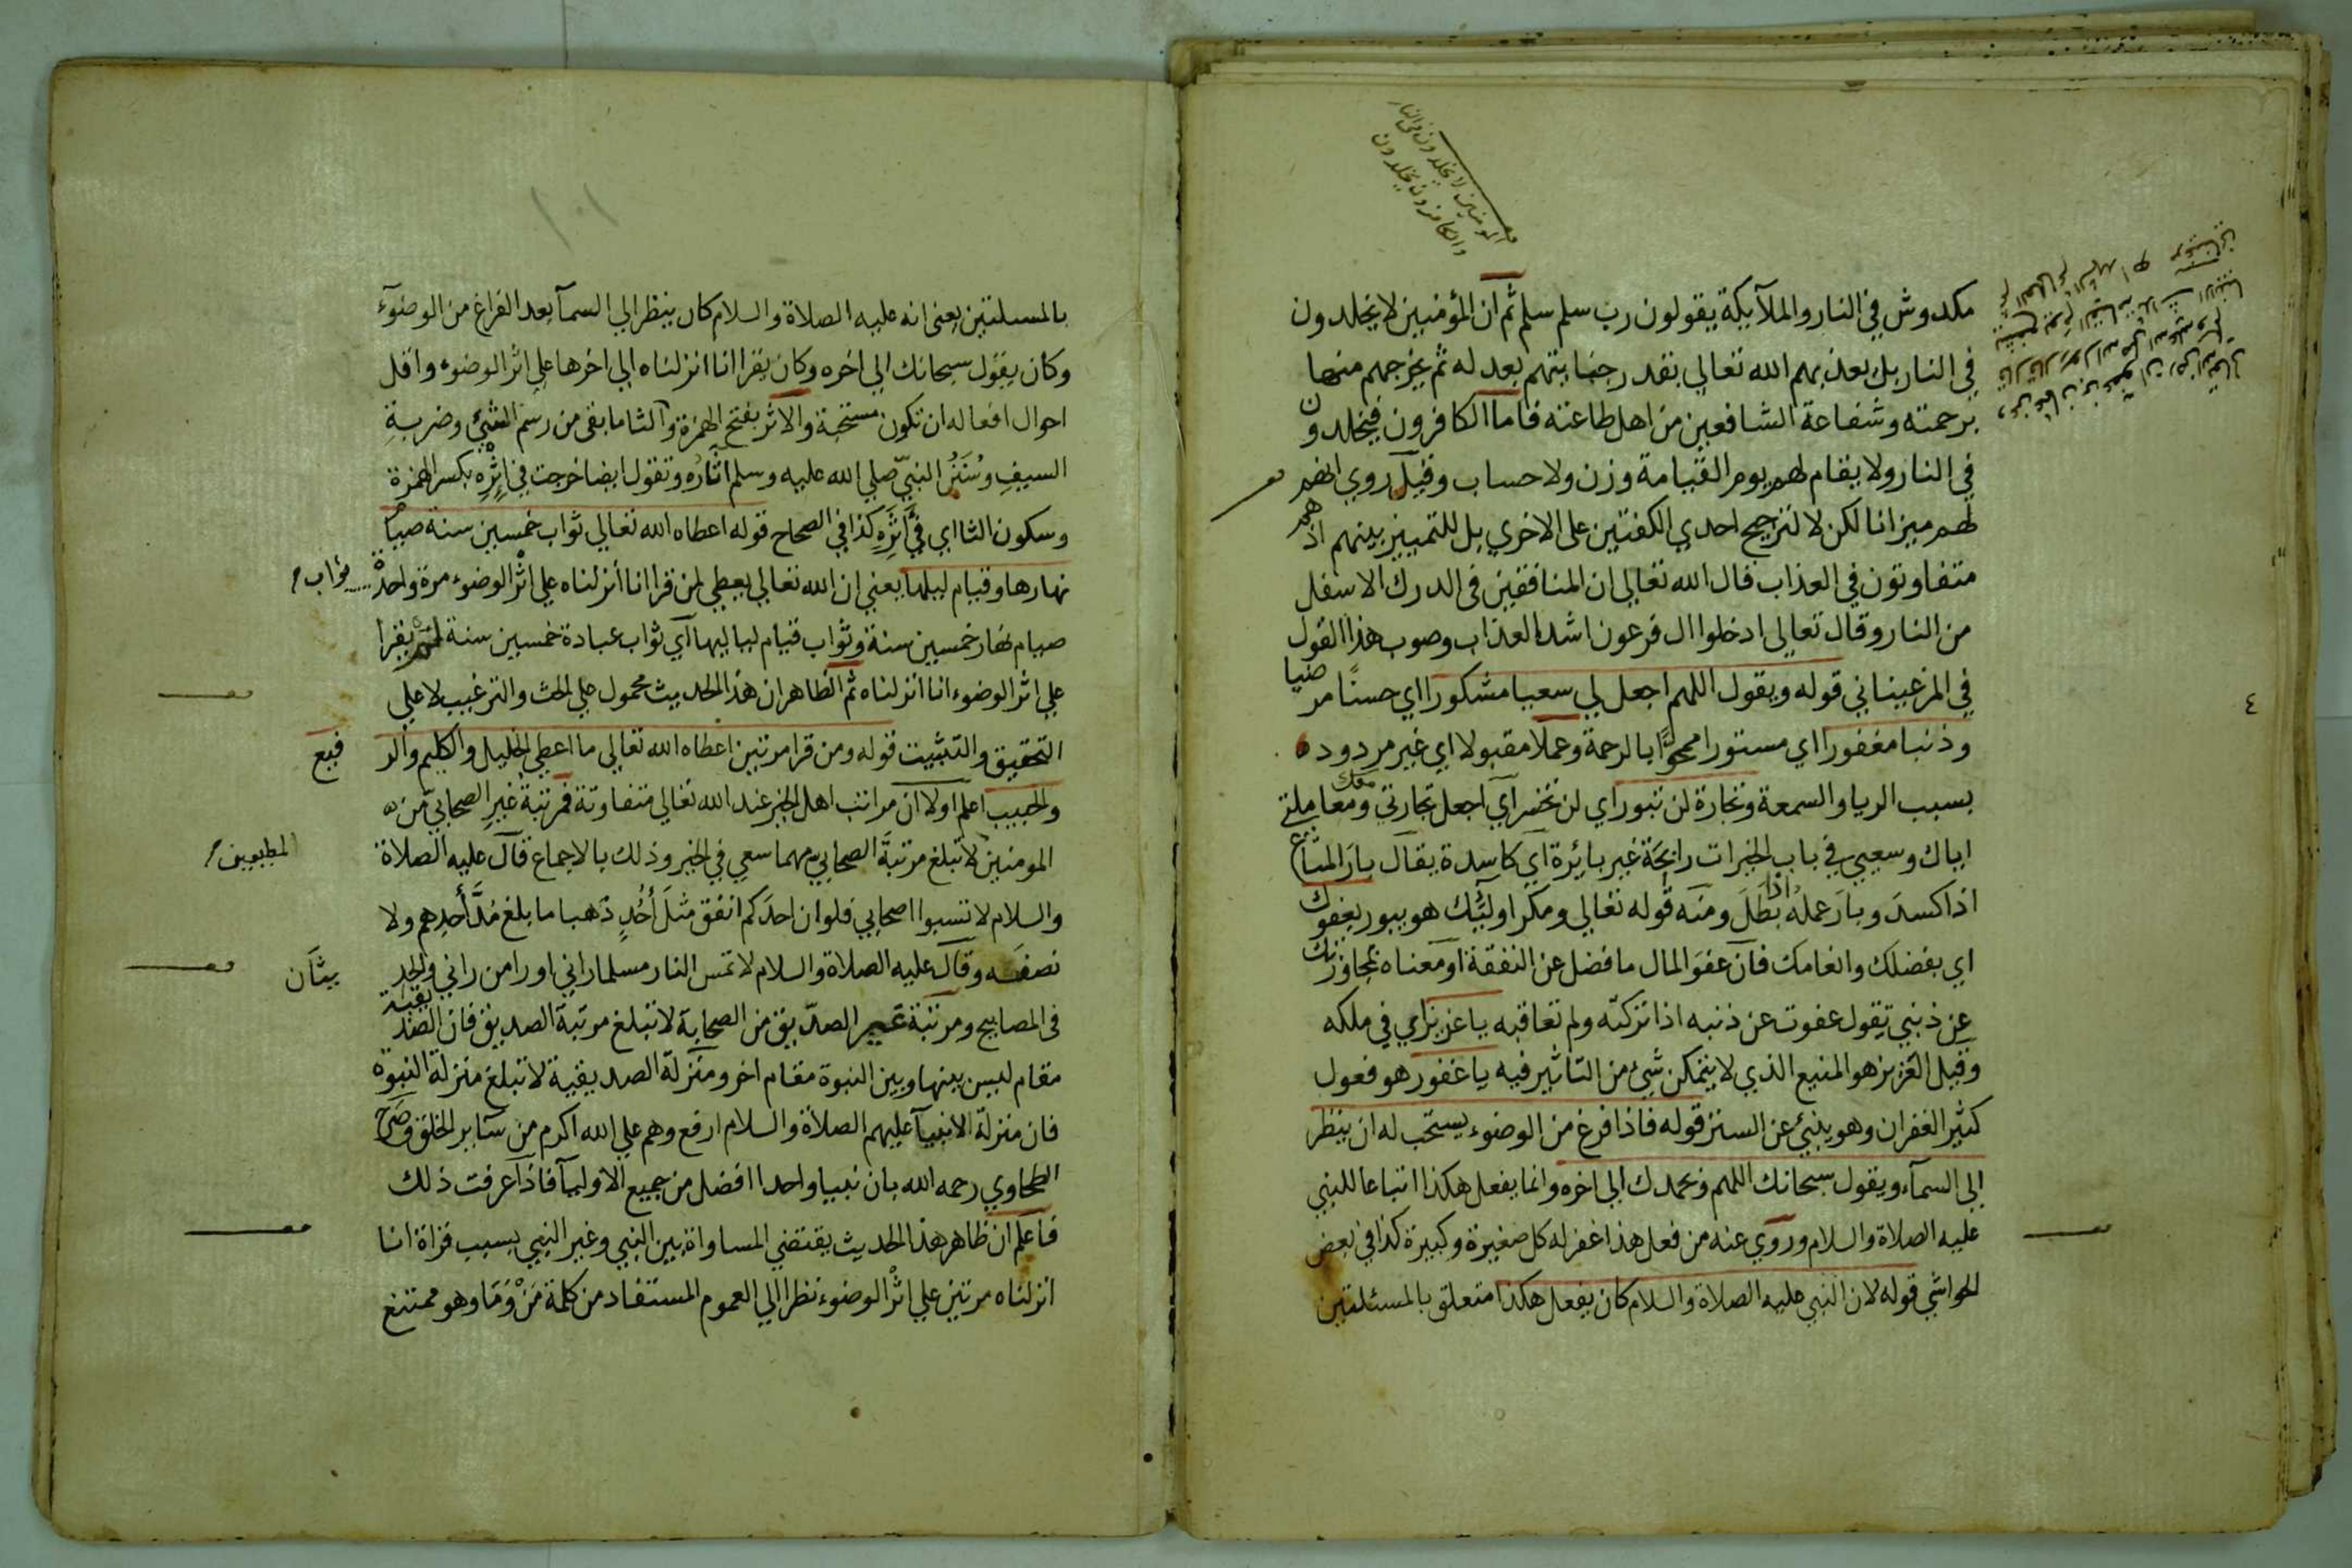 المومنين لا يخلدون في النار
والكافرون يخلدون
مكدوش في النار والملآيكة يقولون رب سلم سلم ثم ان المؤمنين لا يخلدون
في النار بل يعذبهم الله تعالي بقدر جنايتهم بعد له ثم يخرجهم منها
برحمته وشفاعة الشافعين من اهل طاعته فاما الكافرون فيخلدون
في النار ولا يقام لهم يوم القيامة وزن ولا حساب وقيل روي انهم
لهم ميزانا لكن لا لترجيح احدي الكفتين على الاخري بل للتمييز بينهم اذ هم
متفاوتون في العذاب قال الله تعالي ان المنافقين في الدرك الاسفل
من النار وقال تعالي ادخلوا ال فرعون اشد العذاب وصوب هذا القول
في المرغيناني قوله ويقول اللهم اجعل لي سعيا مشكورا اي حسنًا مرضيا
وذنبا مغفورا اي مستورا محوًا بالرحمة وعملا مقبولا اي غير مردوده
بسبب الريا والسمعة وتجارة لن تبور اي لن تخسر اي اجعل تجارتي ومعاملتي معك
اياك وسعيي في باب الخيرات رابحة غير بائرة اي كاسدة يقال بار المتاع
اذا كسد وبار عمله اذا بطل ومنه قوله تعالي ومكر اوليك هو يبور بعفوك
اي بفضلك وانعامك فان عفو المال ما فضل عن النفقة او معناه بتجاوزك
عن ذنبي تقول عفوت عن ذنبه اذا تركته ولم تعاقبه يا عزيز اي في ملكه
وقيل العزيز هو المنيع الذي لا يتمكن شئ من التاثير فيه يا غفور هو فعول
كثير الغفران وهو ينبئ عن الستر قوله فاذا فرغ من الوضوء يستحب له ان ينظر
الى السمآء ويقول سبحانك اللهم وبحمدك الي اخره وانما يفعل هكذا اتباعا للنبي
عليه الصلاة والسلام وروي عنه من فعل هذا غفر له كل صغيرة وكبيرة كذا في بعض
الحواشي قوله لان النبي عليه الصلاة والسلام كان يفعل هكذا متعلق بالمسئلتين
٤
١٠١
بالمسلتين يعني انه عليه الصلاة والسلام كان ينظر الي السمآ بعد الفراغ من الوضوء
وكان يقول سبحانك الي اخره وكان يقرا انا انزلناه الي اخرها علي اثر الوضوء واقل
احوال افعاله ان تكون مستحبة والاثر بفتح الهمزة والثا ما بقي من رسم الشئ وضربة
السيف وسنن النبي صلي الله عليه وسلم اثاره وتقول ايضا خرجت في اثره بكسر الهمزة
وسكون الثا اي في اثره كذا في الصحاح قوله اعطاه الله تعالي ثواب خمسين سنة صيام
نهارها وقيام ليلها يعني ان الله تعالي يعطي لمن قرا انا أنزلناه علي اثر الوضوء مرة واحدة ثواب
صيام نهار خمسين سنة وثواب قيام لياليها اي ثواب عبادة خمسين سنة لم يقرا
علي اثر الوضوء انا انزلناه ثم الظاهر ان هذا الحديث محمول علي الحث والترغيب لا علي
التحقيق والتثبيت قوله ومن قرا مرتين اعطاه الله تعالي ما اعطي الخليل والكليم والرفيع
والحبيب اعلم اولا ان مراتب اهل الخير عند الله تعالي متفاوتة فمرتبة غير الصحابي من
المومنين المطيعين لا تبلغ مرتبة الصحابي مهما سعي في الخير وذلك بالاجماع قال عليه الصلاة
والسلام لا تسبوا اصحابي فلو ان احدكم انفق مثل أُحُدٍ ذهبا ما بلغ مُدَّ أحدهم ولا
نصفه وقال عليه الصلاة والسلام لا تمس النار مسلما راني او را من راني والحديثان
في المصابيح ومرتبة غير الصديق من الصحابة لا تبلغ مرتبة الصديق فان الصديقية
مقام ليس بينها وبين النبوة مقام اخر ومنزلة الصديقية لا تبلغ منزلة النبوة
فان منزلة الانبيآ عليهم الصلاة والسلام ارفع وهم علي الله اكرم من سآير الخلق وصرح
الطحاوي رحمه الله بان نبيا واحدا افضل من جميع الاوليآ فاذا عرفت ذلك
فاعلم ان ظاهر هذا الحديث يقتضي المساواة بين النبي وغير النبي بسبب قراة انا
انزلناه مرتين علي اثر الوضوء نظرا الي العموم المستفاد من كلمة مَنْ وَمَا وهو ممتنع